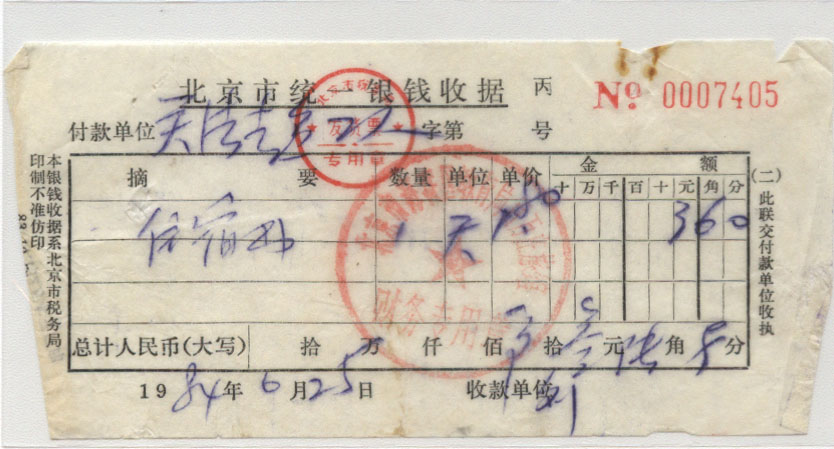 北京市统一银钱收据 丙 № 0007405
付款单位 字第 号
发货票
专用章
摘 要 数量 单位 单价 金 额
十 万 千 百 十 元 角 分
住宿 天 1.80 3 6 0
财务专用章
总计人民币(大写) 拾 万 仟 佰 拾 叁 元 陆 角 分
1984年6月25日 收款单位 刘
本银钱收据系北京市税务局
印制不准仿印
(二)此联交付款单位收执